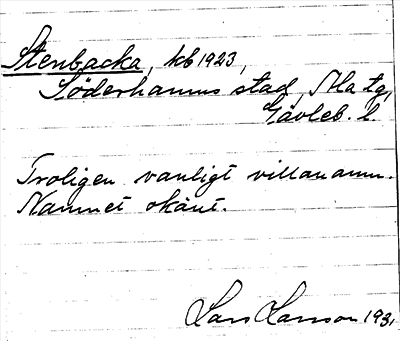 Stenbacka, kb 1923,
Söderhamns stad, Ala tg,
Gävleb. l.
Troligen vanligt villanamn.
Namnet okänt.
Lars Larsson 193